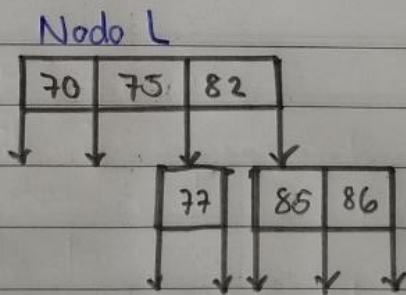 Nodo L
70 75 82
77 85 86